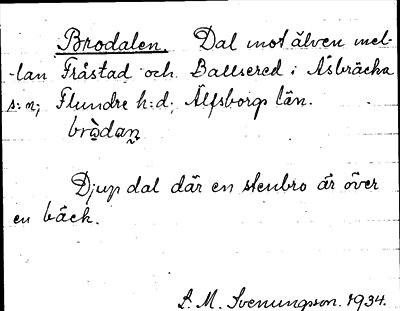 Brodalen. Dal mot älven mel-
-lan Fråstad och Ballsered i Åsbräcka
s:n; Flundre h:d; Älfsborgs län.
brodan
Djup dal där en stenbro är över
en bäck.
S. M. Svenungson. 1934.